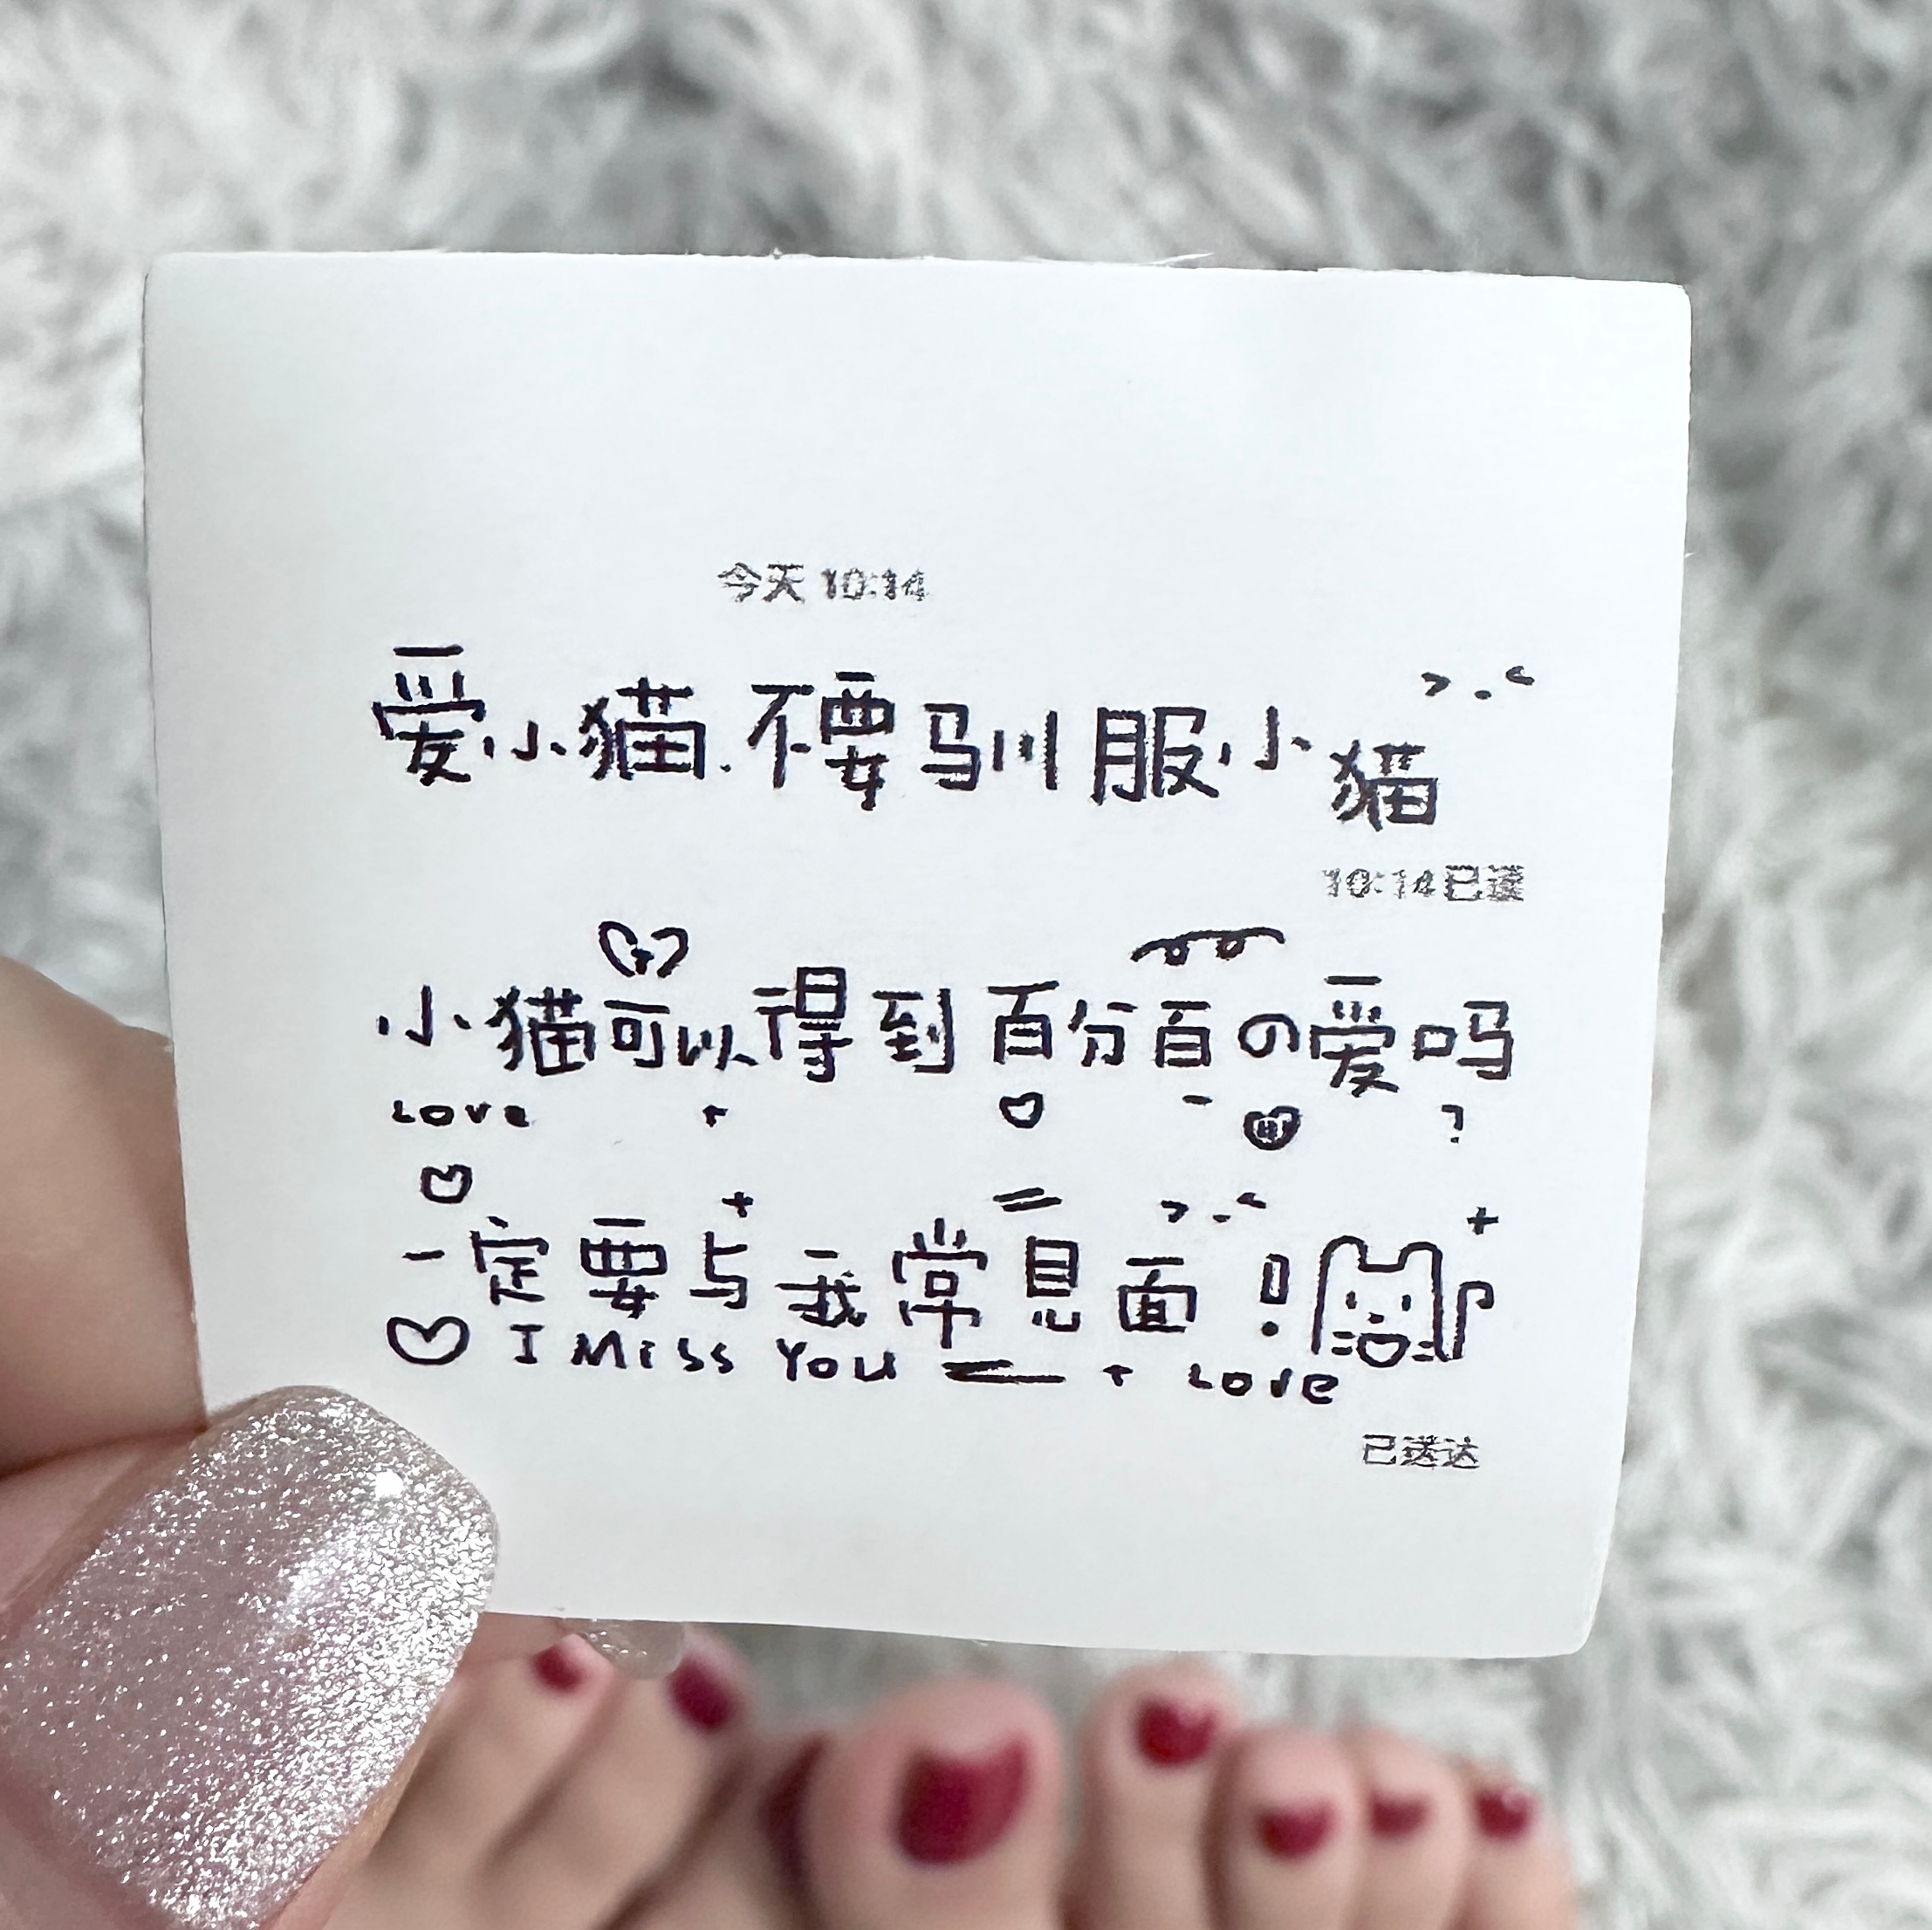 今天 10:14
爱小猫.不要驯服小猫
10:14已读
小猫可以得到百分百の爱吗
Love ?
一定要与我常见面!
I Miss You Love
已送达